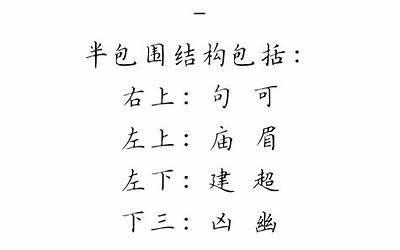 –
半包围结构包括：
右上：句 可
左上：庙 眉
左下：建 超
下三：凶 幽